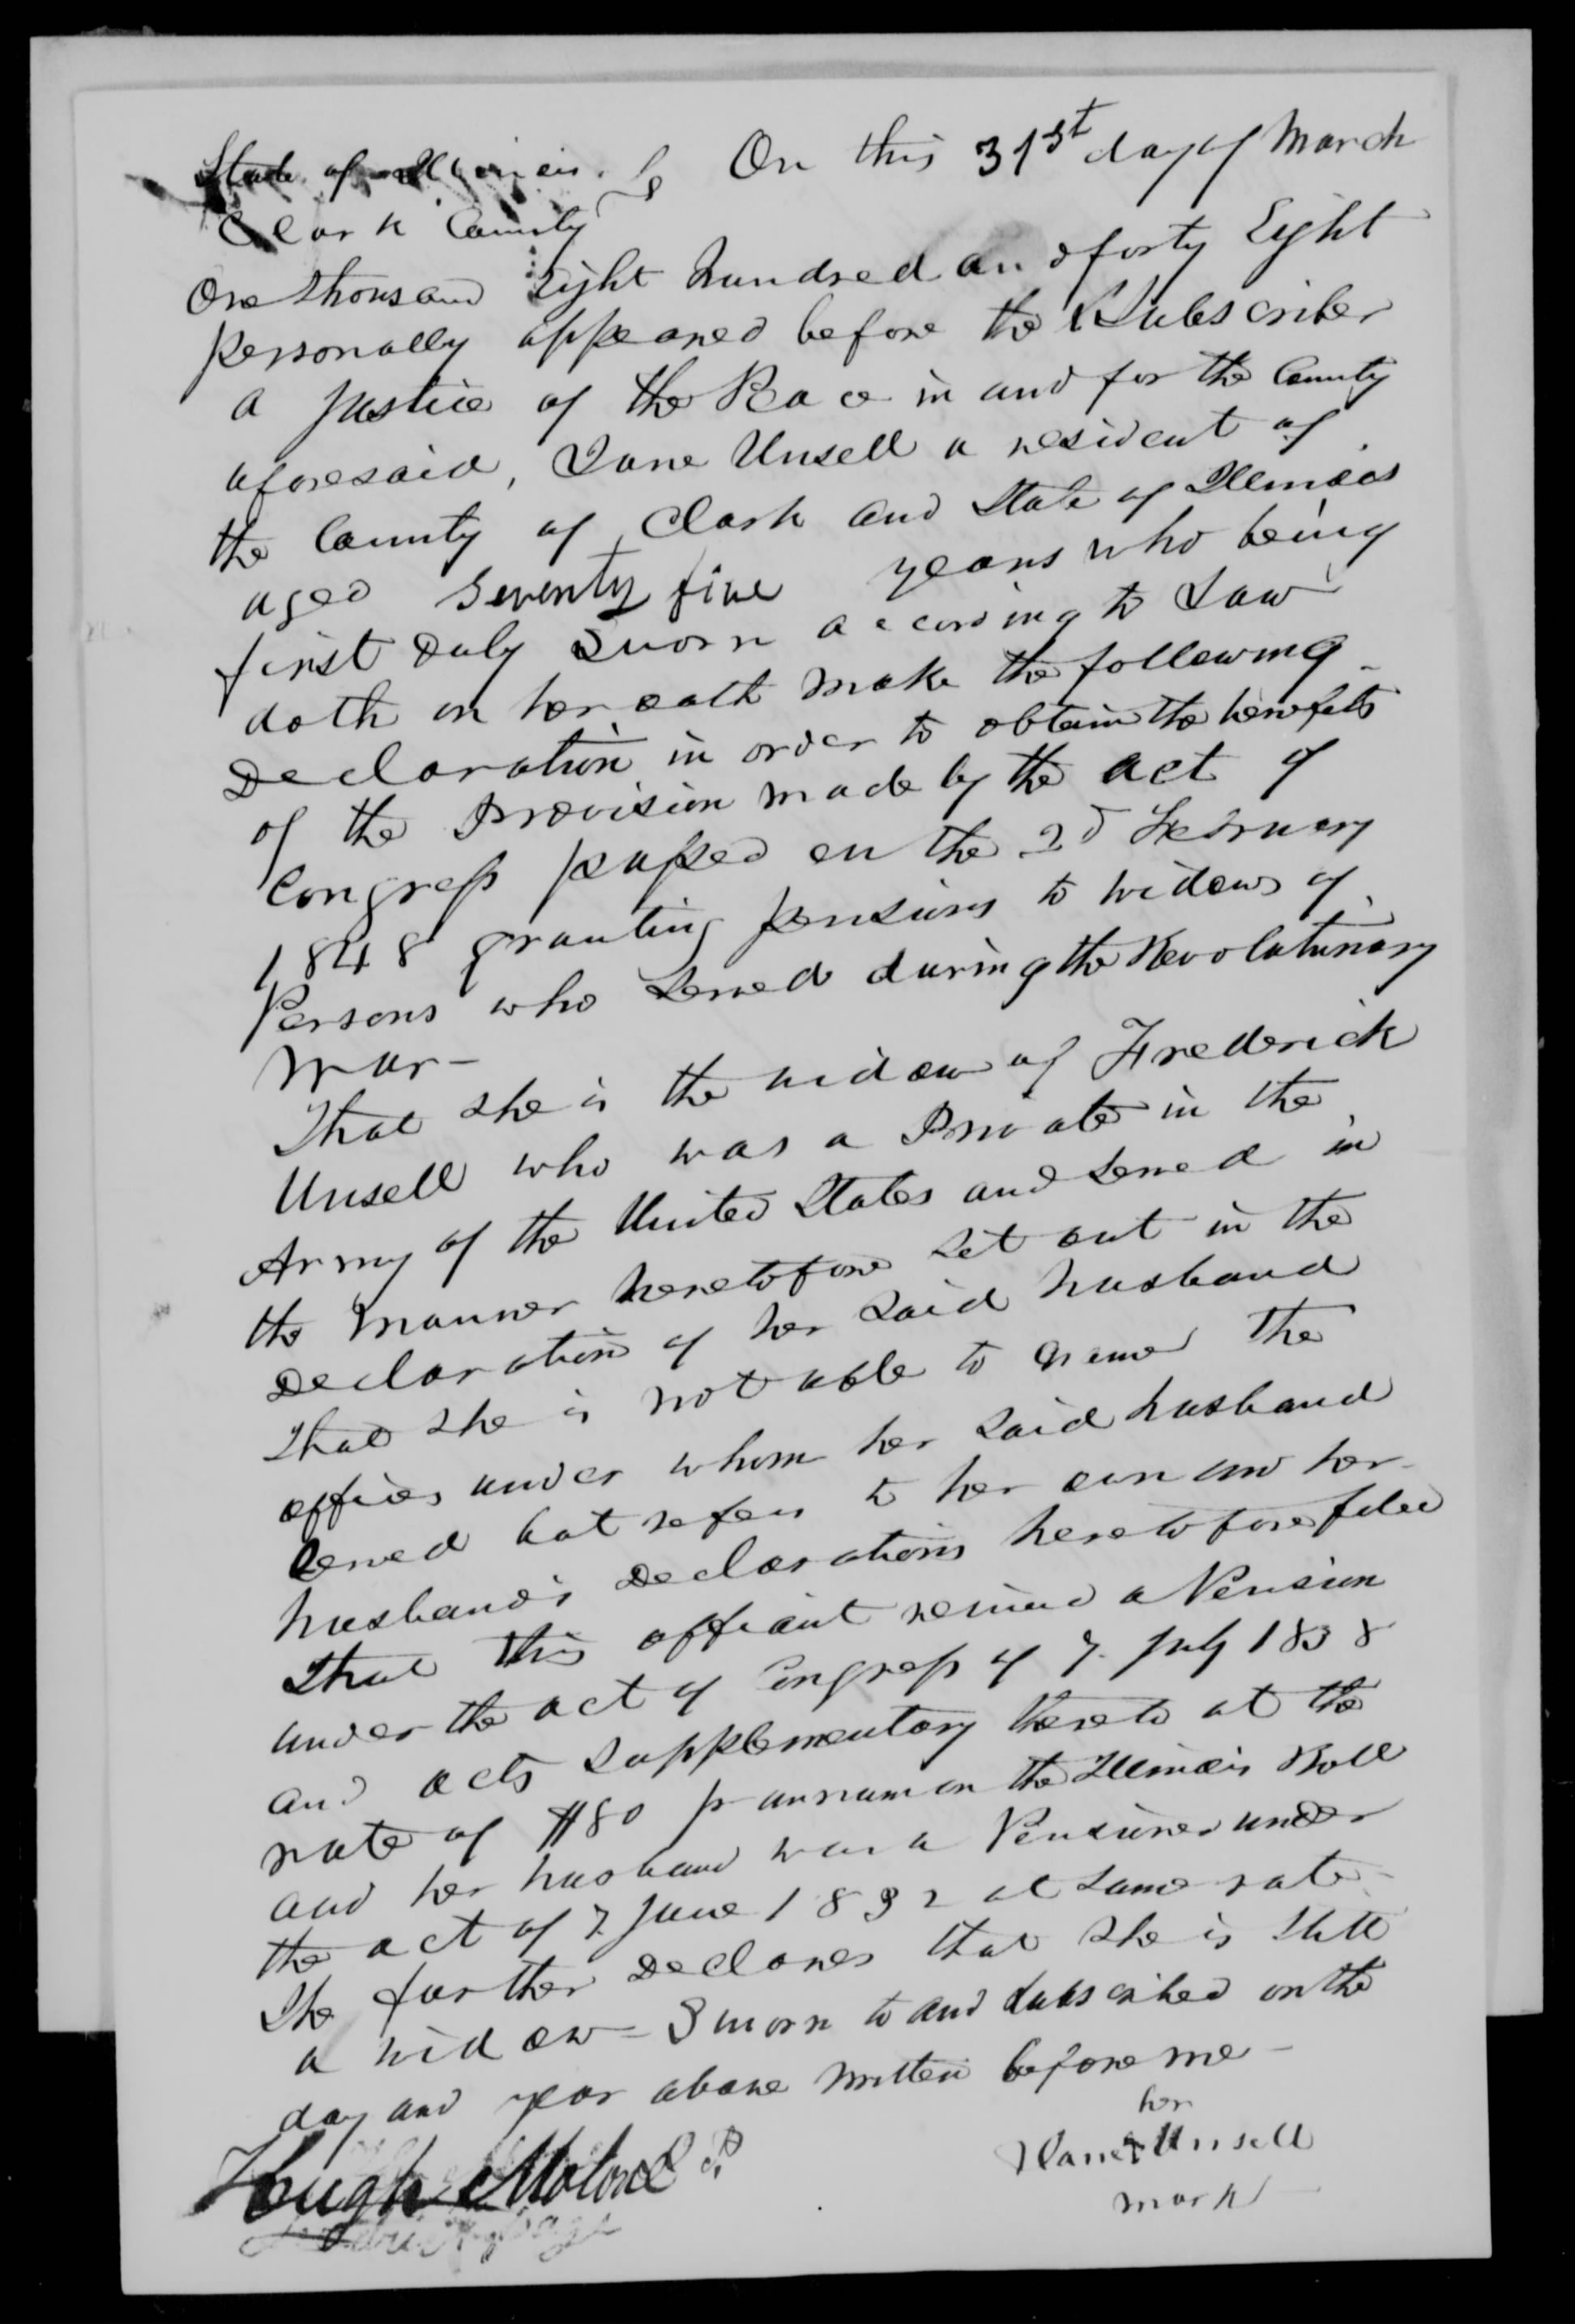 State of Illinois } On this 31st day of March
Clark County
One thousand Eight hundred and forty Eight
personally appeared before the Subscriber
a Justice of the Peace in and for the County
aforesaid, Jane Unsell a resident of
the County of Clark and State of Illinois
aged Seventy five years who being
first duly sworn according to Law
doth on her oath make the following
Declaration in order to obtain the benefits
of the Provision made by the act of
Congress passed on the 2d February
1848 granting pensions to widows of
Persons who served during the Revolutionary
War-
That she is the widow of Frederick
Unsell who was a Private in the
Army of the United States and served in
the manner heretofore set out in the
Declaration of her said husband
That she is not able to name the
officers under whom her said husband
served but refers to her own and her
husband's Declarations heretofore filed
That this affiant received a Pension
under the act of Congress of 7. July 1838
and acts supplementary thereto at the
rate of $80 pr annum on the Illinois Roll
and her husband was a Pensioner under
the act of 7. June 1832 at same rate-
She further Declares that she is still
a widow- Sworn to and subscribed on the
day and year above written before me-
her
Jane X Unsell
mark
Hugh Malone J.P.